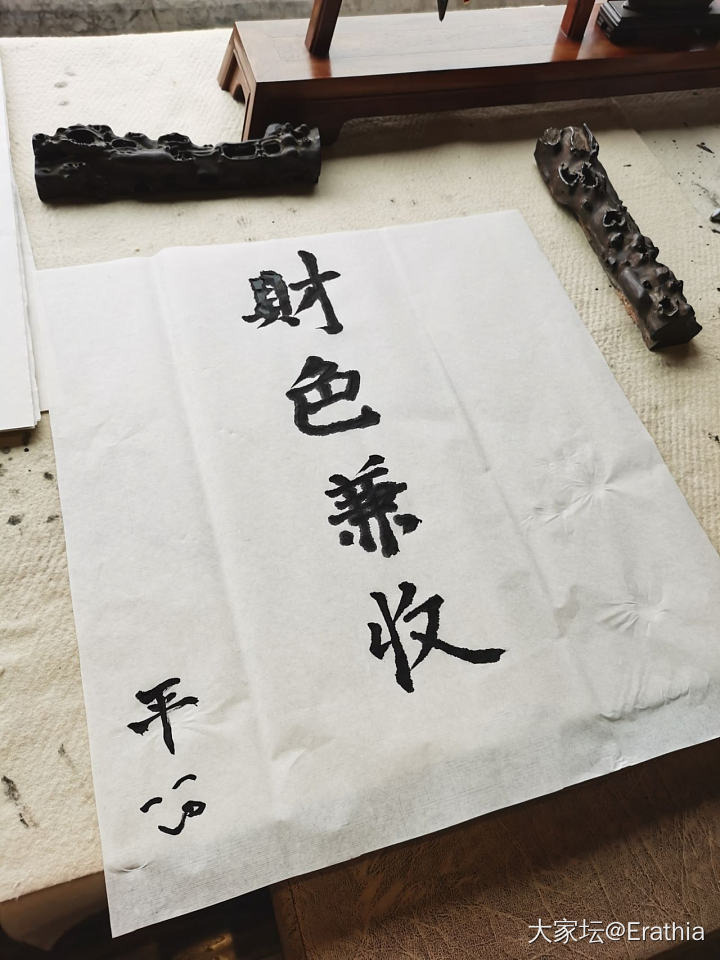 財色兼收
平心
大家坛@Erathia